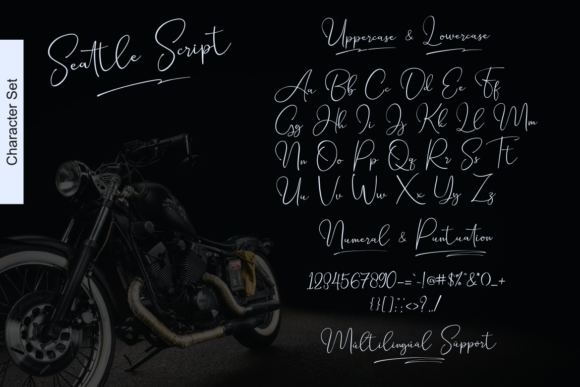 Character Set
Seattle Script
Uppercase & Lowercase
Aa Bb Cc Dd Ee Ff
Gg Hh Ii Jj Kk Ll Mm
Nn Oo Pp Qq Rr Ss Tt
Uu Vv Ww Xx Yy Zz
Numeral & Puntuation
1234567890-=`~!@#$%^&*()_+
{}[]:;<>?,./
Multilingual Support